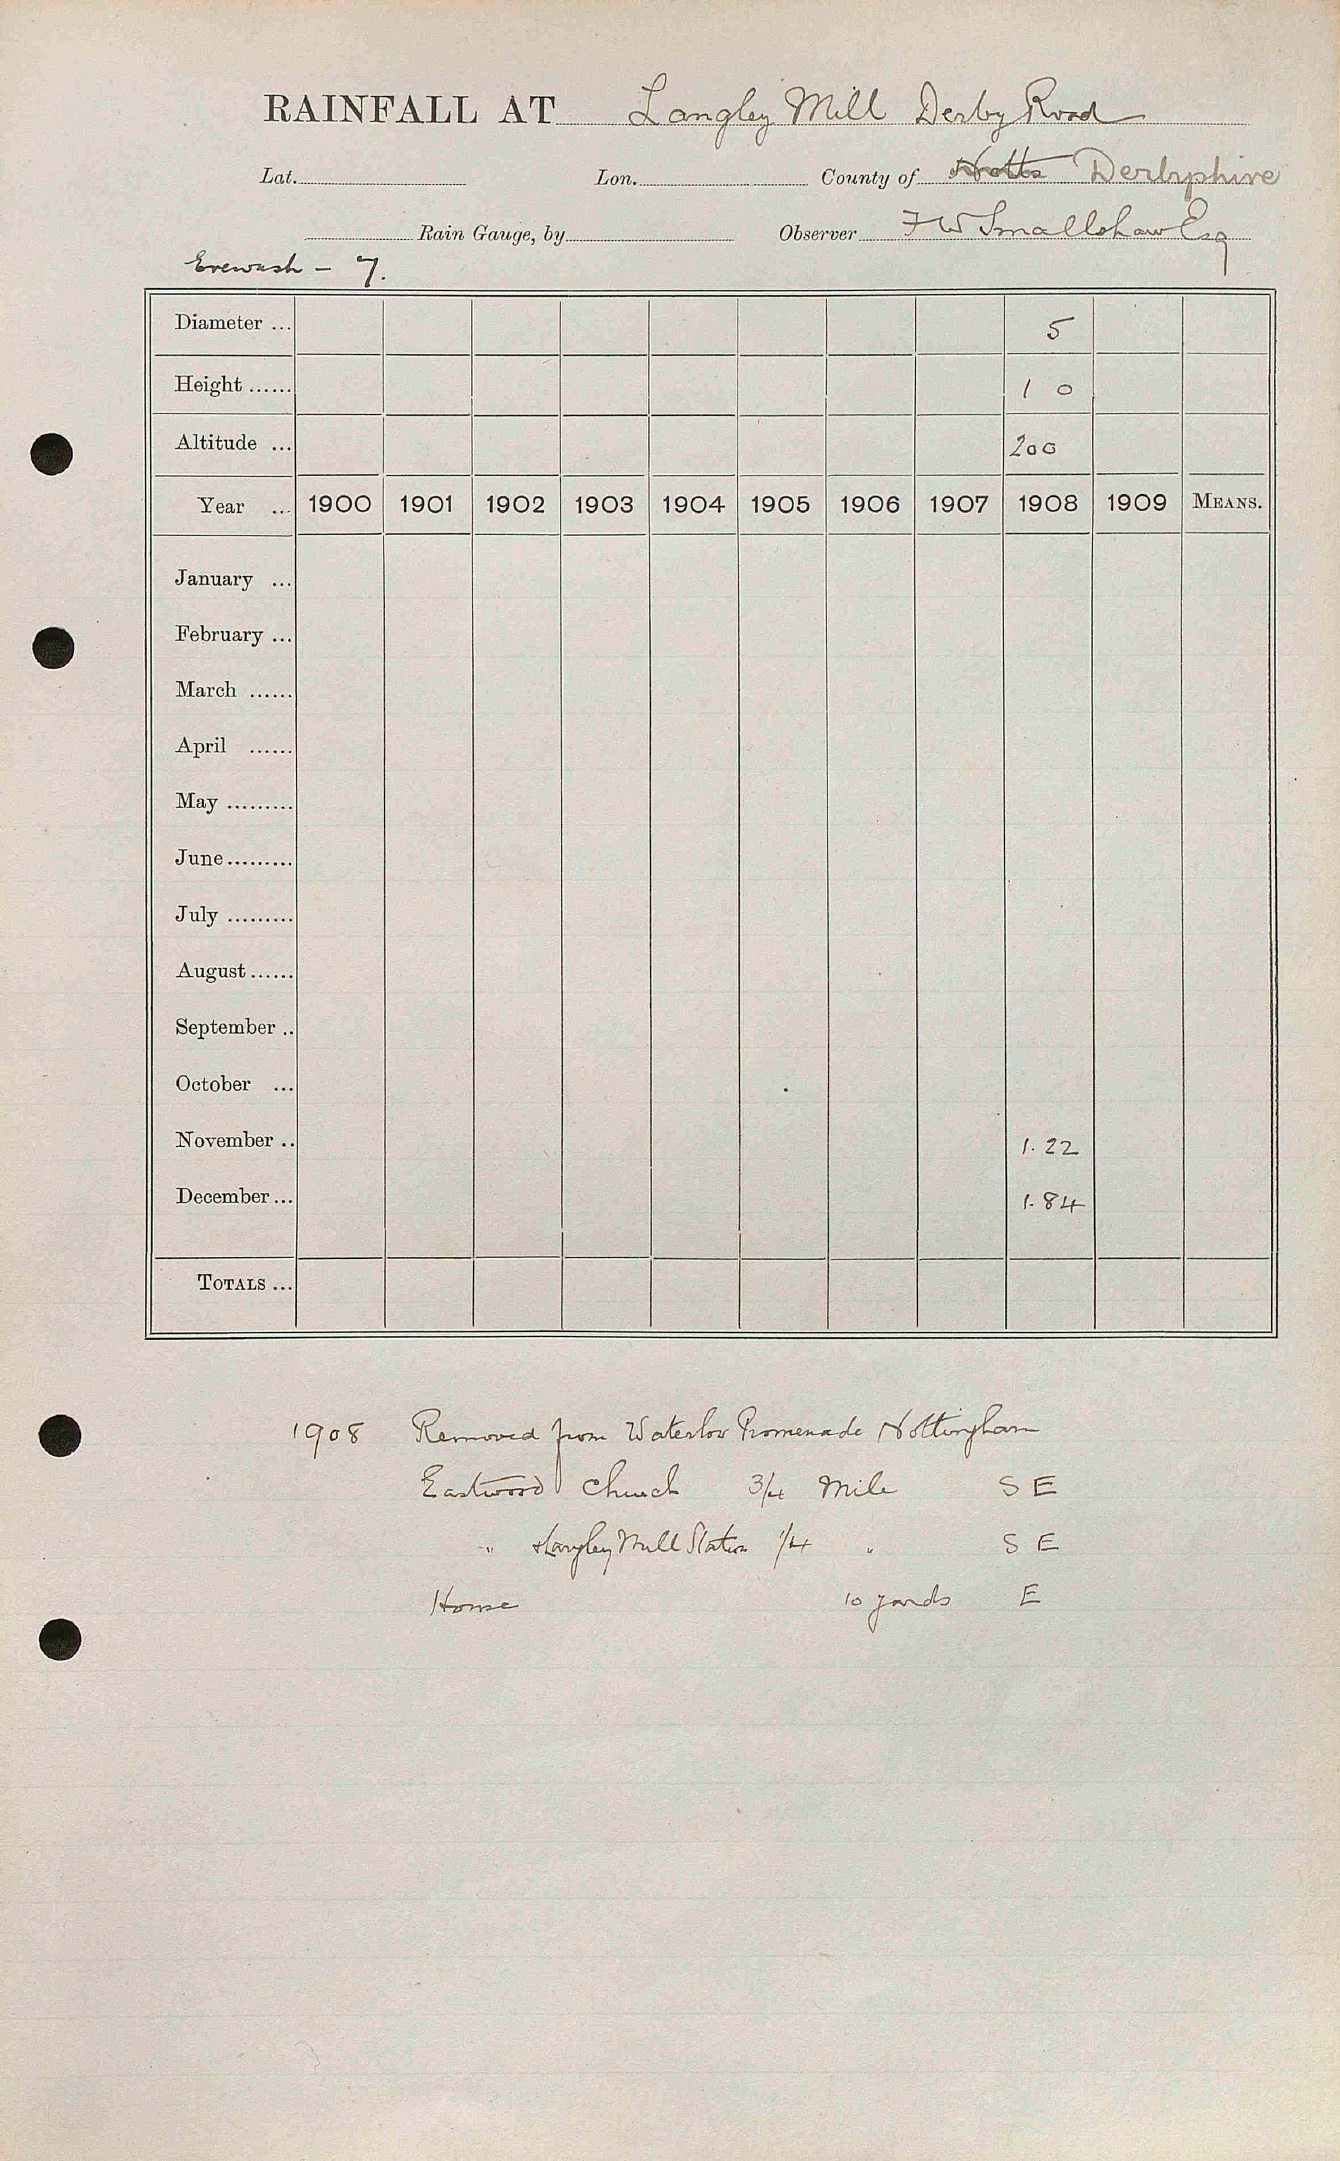 RAINFALL AT Langley Mill Derby Road
Lat. Lon. County of Notts Derbyshire
Rain Gauge, by Observer F W Smallshaw Esq
Erewash - 7.
Diameter ... 5
Height ...... 1 0
Altitude ... 200
Year ... 1900 1901 1902 1903 1904 1905 1906 1907 1908 1909 MEANS.
January ...
February ...
March ......
April ......
May .........
June.........
July .........
August......
September ..
October ...
November .. 1.22
December... 1.84
TOTALS ...
1908 Removed from Waterloo Promenade Nottingham
Eastwood Church 3/4 Mile S E
" Langley Mill Station 1/4 " S E
House 10 yards E